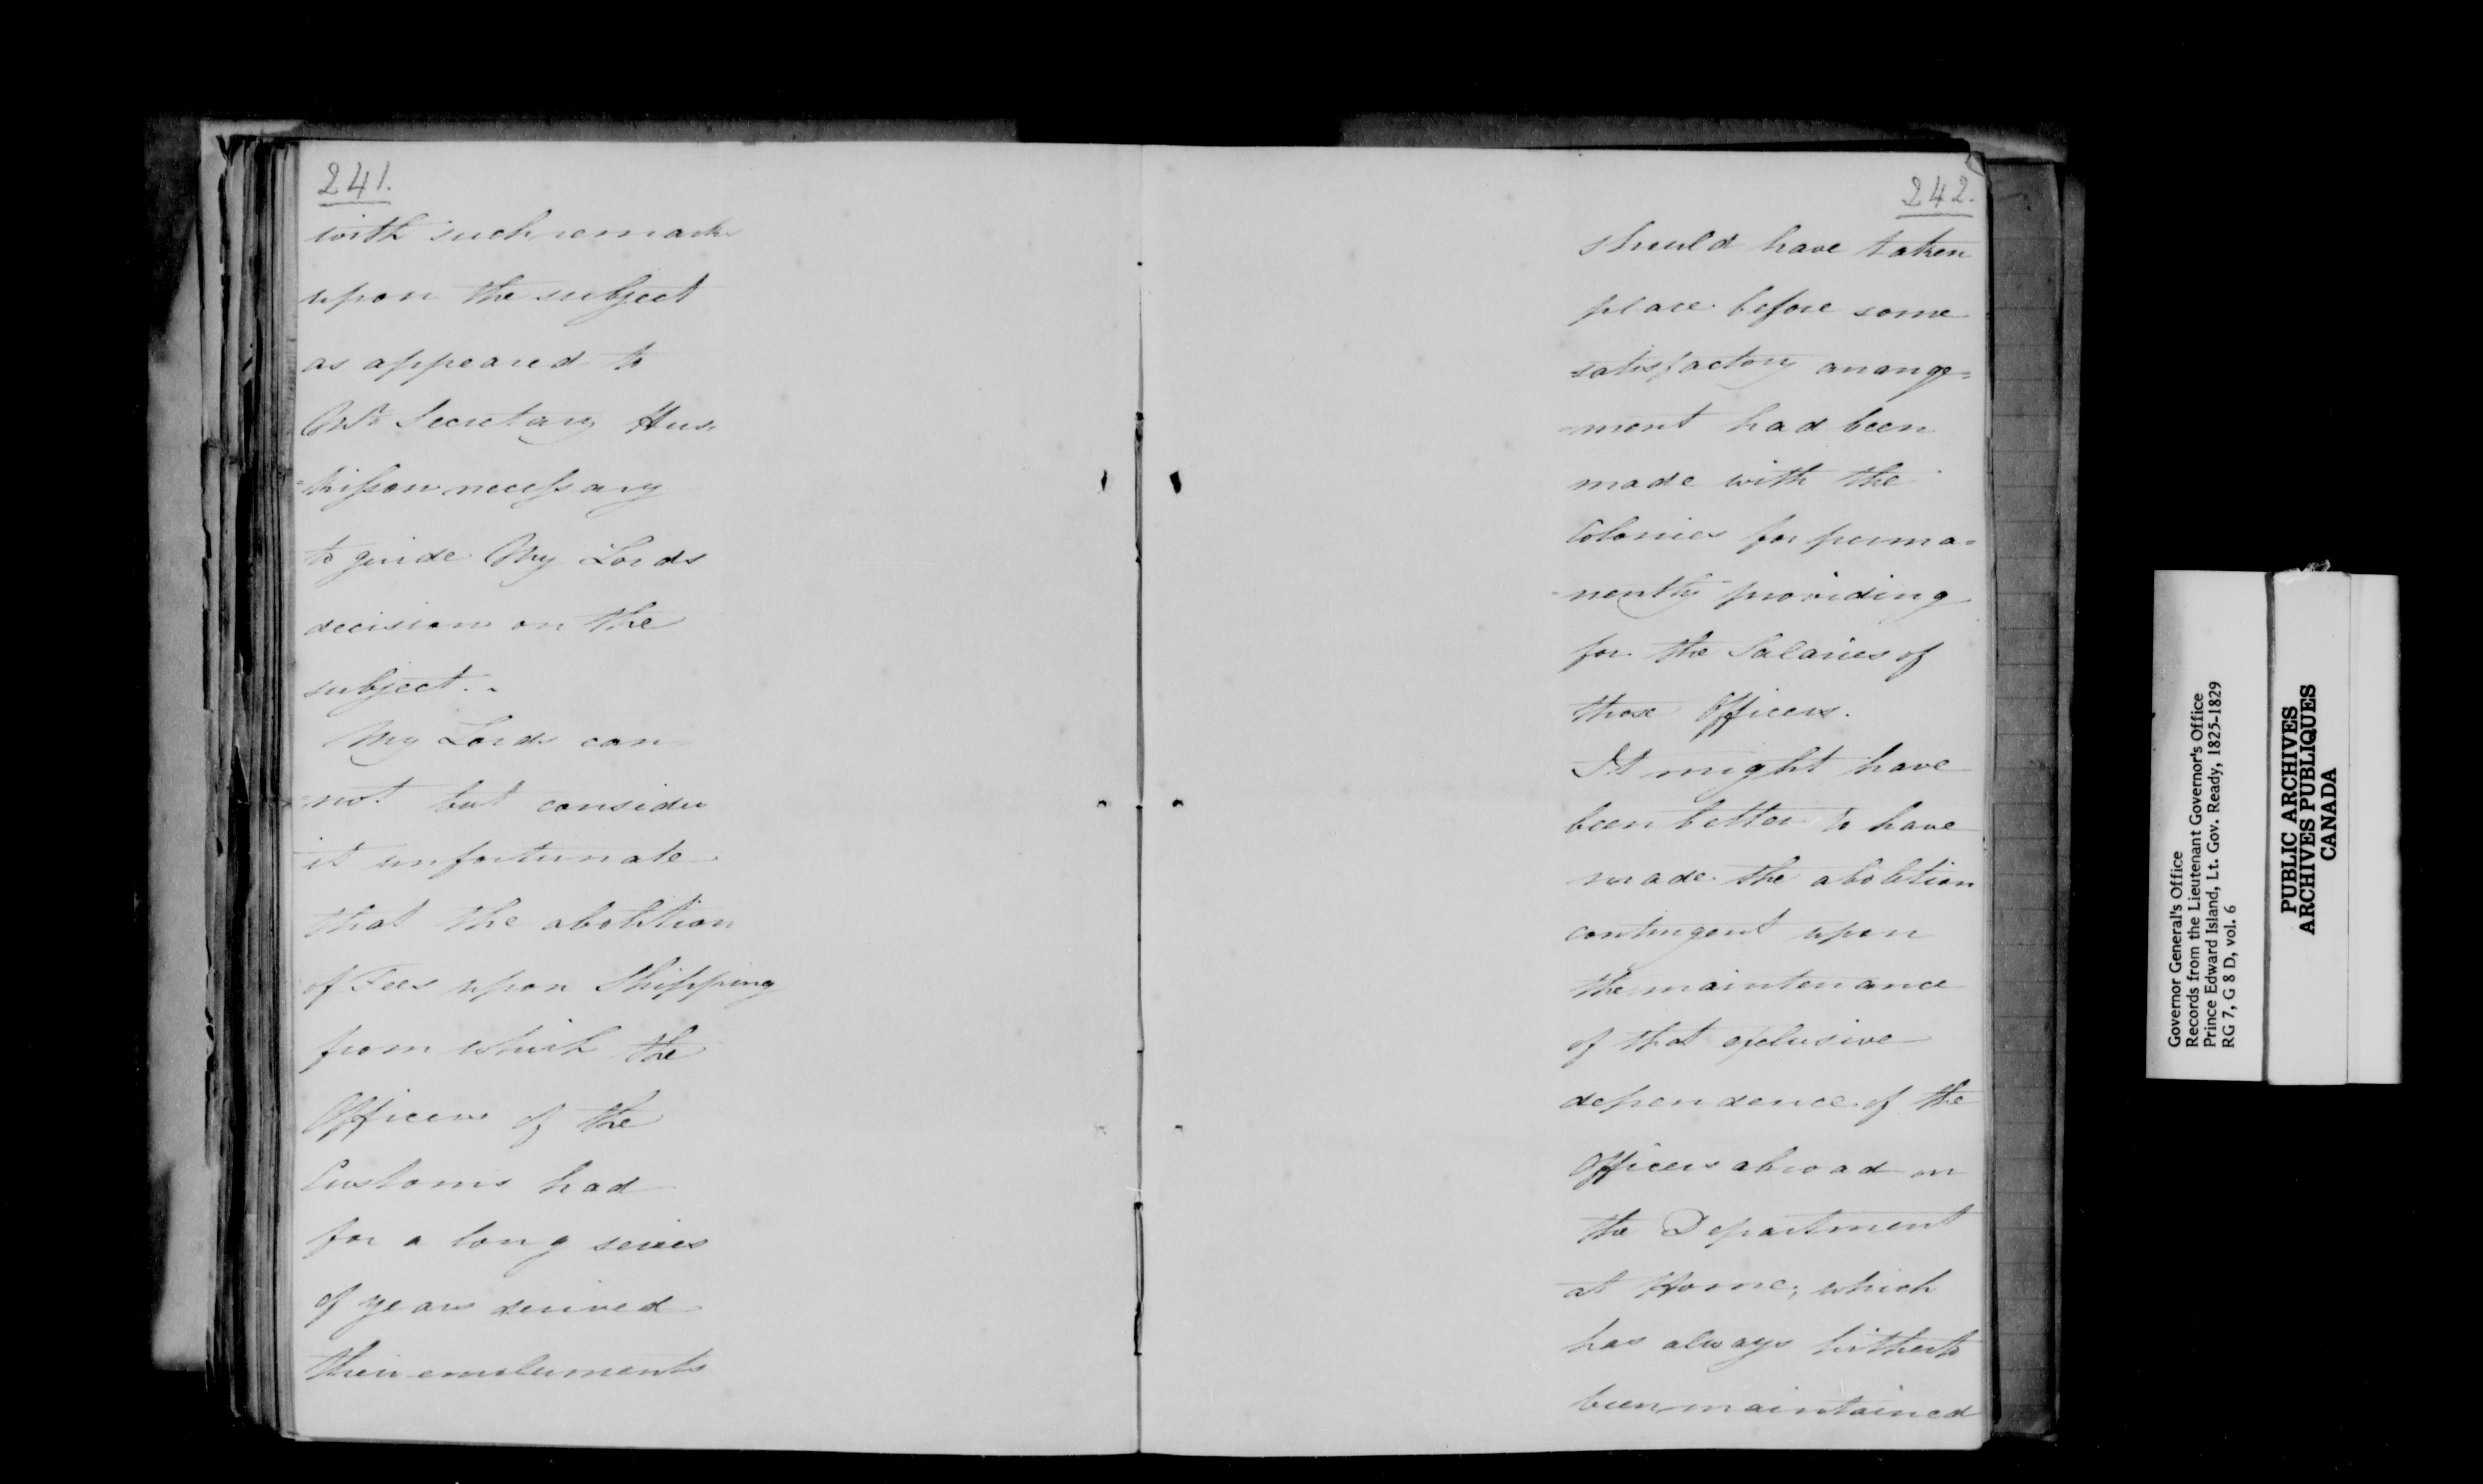 241.
with such remarks
upon the subject
as appeared to
Mr. Secretary Hus=
=kisson necessary
to guide My Lords
decision on the
subject. -
My Lords can
=not but consider
it unfortunate
that the abolition
of Fees upon Shipping
from which the
Officers of the
Customs had
for a long series
of years derived
their emoluments
242.
should have taken
place before some
satisfactory arrange=
=ment had been
made with the
Colonies for perma=
=nently providing
for the Salaries of
those Officers.
It might have
been better to have
made the abolition
contingent upon
the maintenance
of that exclusive
dependence of the
Officers abroad on
the Department
at Home; which
has always hitherto
been maintained
Governor General's Office
Records from the Lieutenant Governor's Office
Prince Edward Island, Lt. Gov. Ready, 1825-1829
RG 7, G 8 D, vol. 6
PUBLIC ARCHIVES
ARCHIVES PUBLIQUES
CANADA